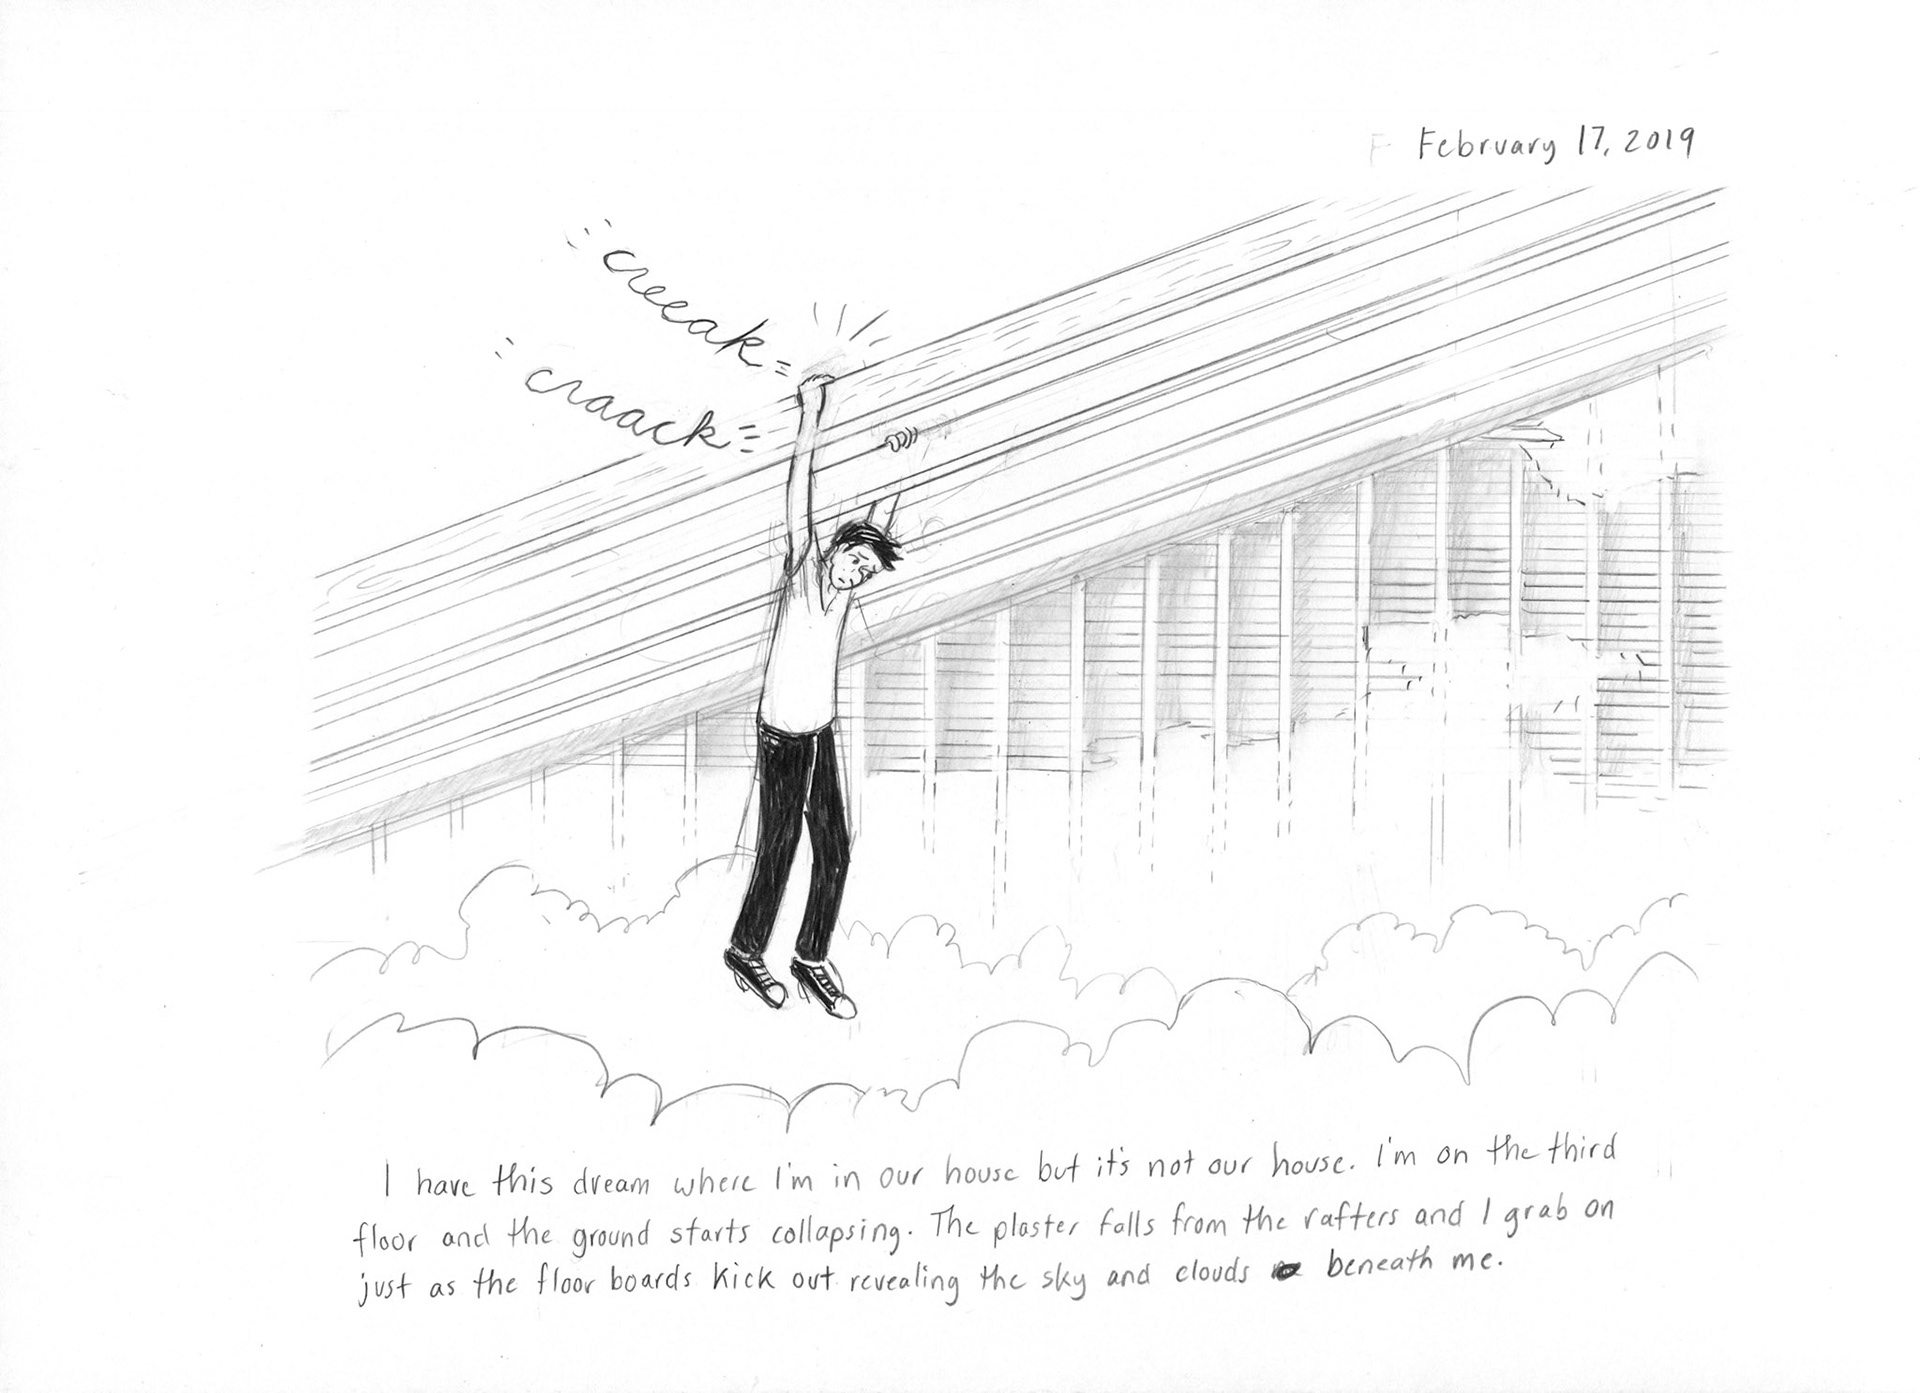 February 17, 2019
creeeak
craack
I have this dream where I'm in our house but it's not our house. I'm on the third
floor and the ground starts collapsing. The plaster falls from the rafters and I grab on
just as the floor boards kick out revealing the sky and clouds beneath me.